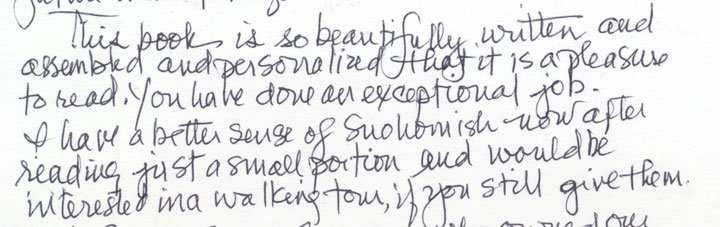 This book is so beautifully written and
assembled and personalized that it is a pleasure
to read. You have done an exceptional job.
I have a better sense of Snohomish now after
reading just a small portion and would be
interested in a walking tour, if you still give them.